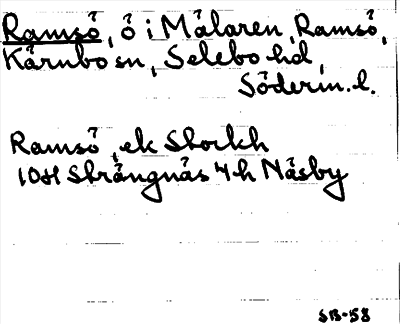 Ramsö, ö i Mälaren, Ramsö,
Kärnbo sn, Selebo hd,
Söderm. l.
Ramsö, ek Stockh
10H Strängnäs 4h Näsby
SB-58